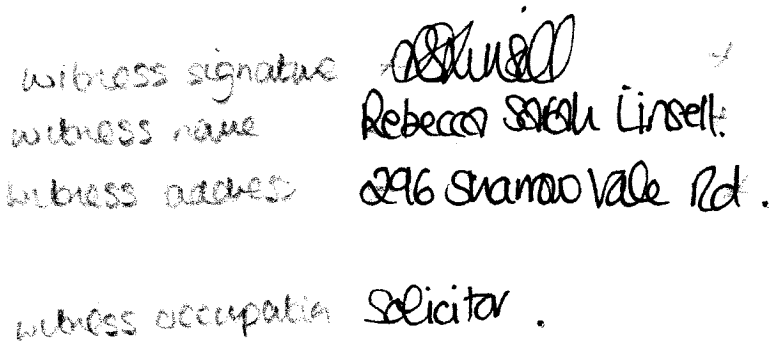 witness signature
witness name Rebecca Sarah Linsell.
witness address 296 Sharrow Vale Rd.
witness occupation Solicitor.